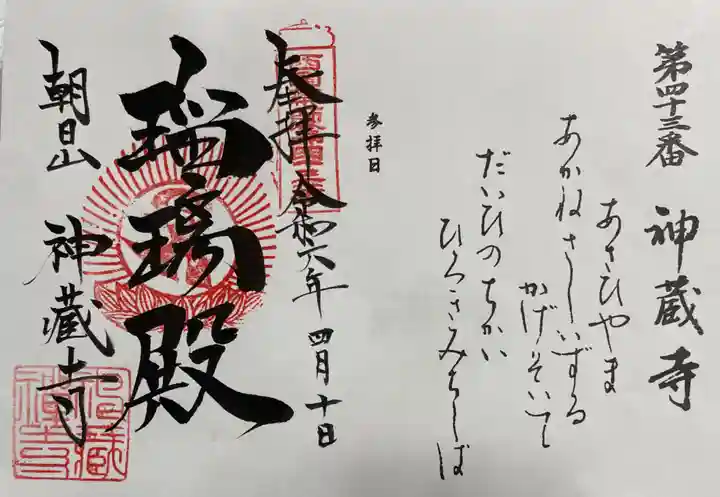 第四十三番　神蔵寺
あさひやま
あかねさしいずる
かげそいて
だいひのちかい
ひろきみちしば
参拝日
奉拝　令和六年四月十日
瑠璃殿
朝日山　神蔵寺